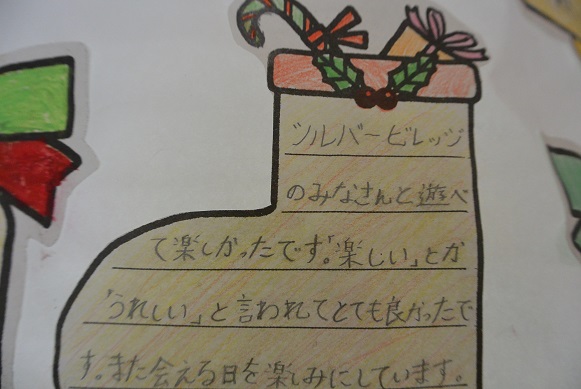 シルバービレッジ
のみなさんと遊べ
て楽しかったです。「楽しい」とか
「うれしい」と言われてとても良かったで
す。また会える日を楽しみにしています。